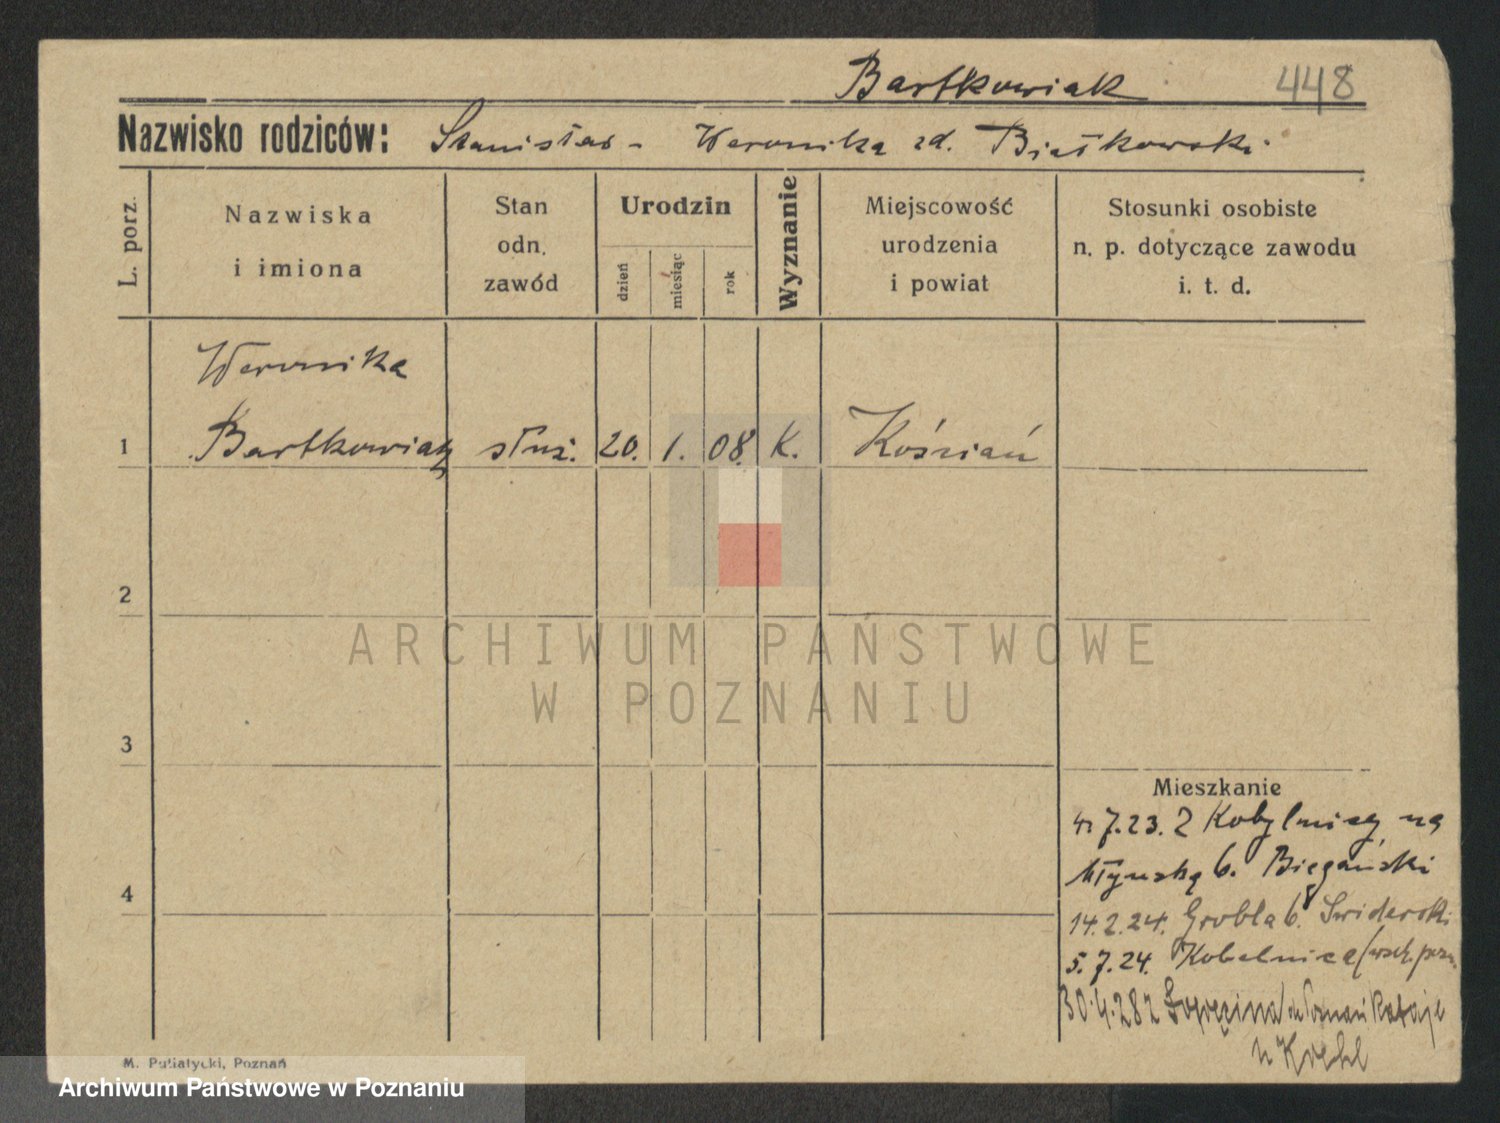 Bartkowiak 448
Nazwisko rodziców: Stanisław - Weronika zd. Białkowska
L. porz.
Nazwiska
i imiona
Stan
odn.
zawód
Urodzin
dzień
miesiąc
rok
Wyznanie
Miejscowość
urodzenia
i powiat
Stosunki osobiste
n. p. dotyczące zawodu
i. t. d.
Weronika
1 Bartkowiak służ. 20. 1. 08. K. Kościań
2
3
4
ARCHIWUM PAŃSTWOWE
W POZNANIU
Mieszkanie
7.23. Z Kobylnicy na
Młyńską 6. Biegański
14.2.24. Grobla 6. Świderski
5.7.24. Kobelnica
30.4.28 z
M. Putiatycki, Poznań
Archiwum Państwowe w Poznaniu